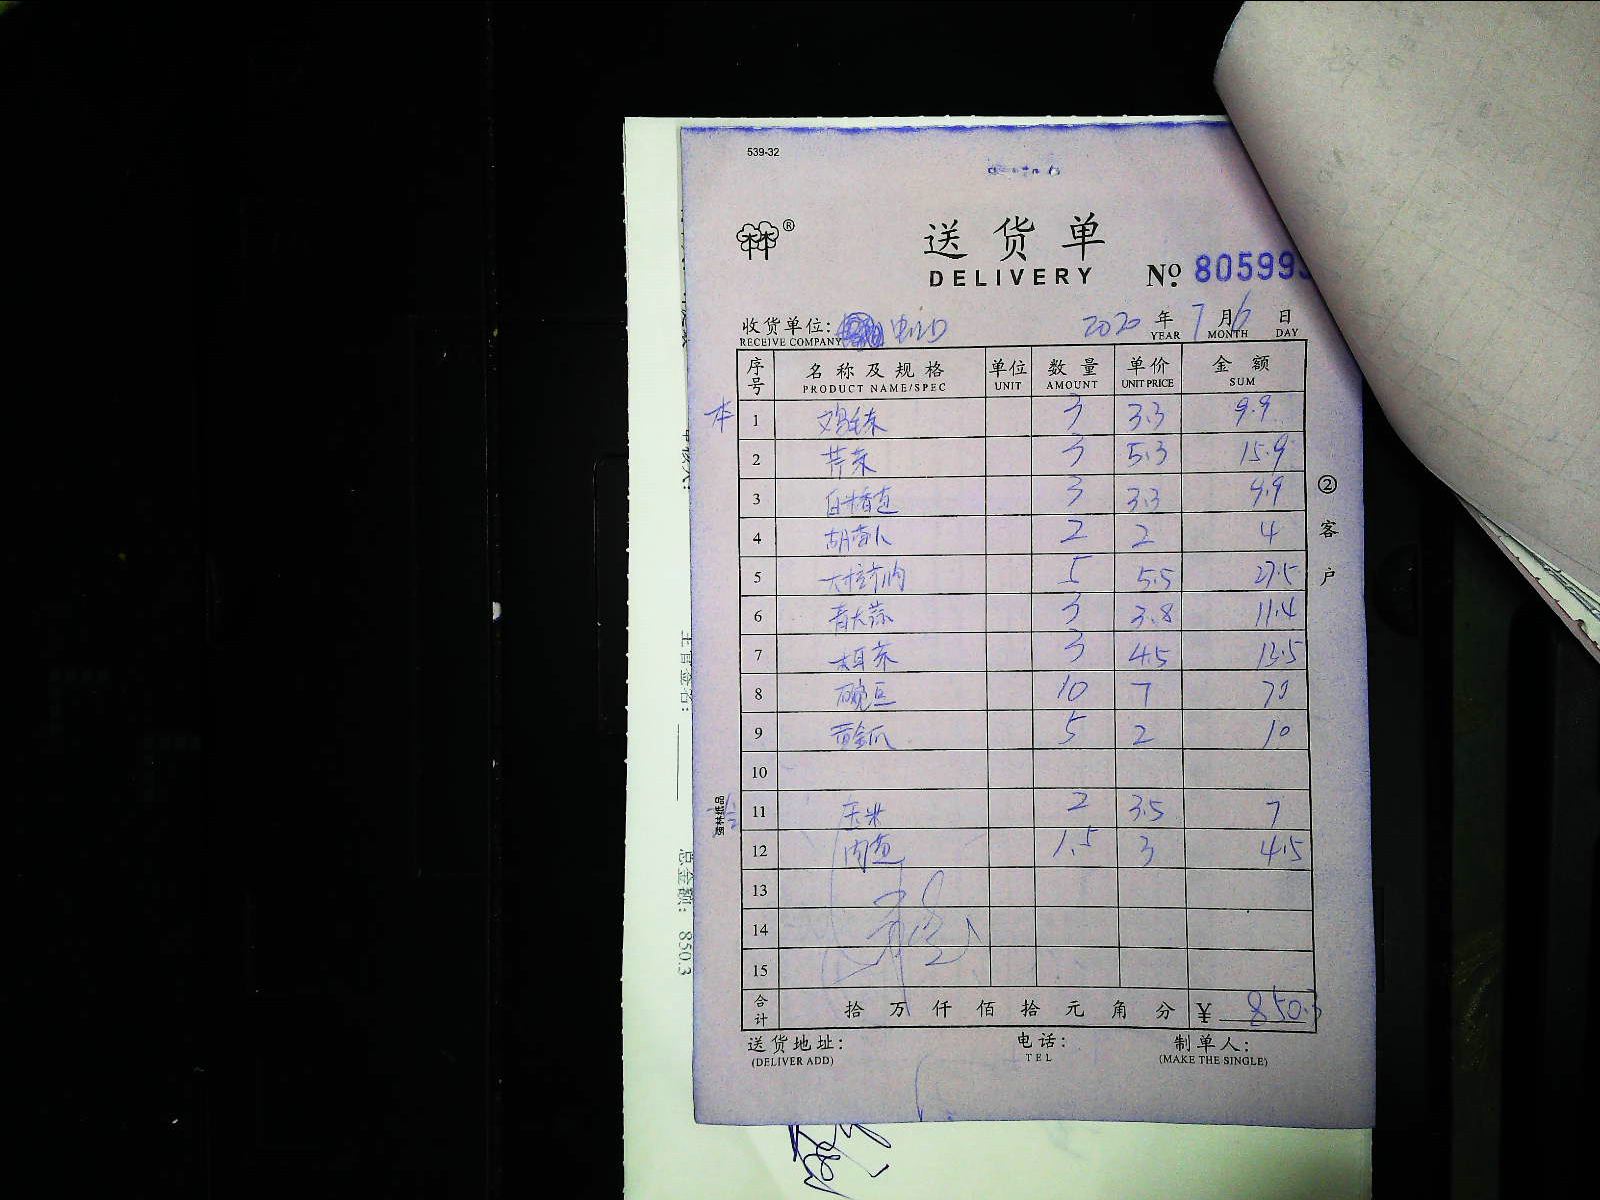 539-32
送货单
DELIVERY
No. 80599
收货单位:
RECEIVE COMPANY
2020 年 7 月 6 日
YEAR MONTH DAY
序号 名称及规格 单位 数量 单价 金额
PRODUCT NAME/SPEC UNIT AMOUNT UNIT PRICE SUM
本
1 鸡毛菜 3 3.3 9.9
2 芹菜 3 5.3 15.9
3 3 3.3 9.9
4 胡萝卜 2 2 4
5 5 5.5 27.5
6 青大蒜 3 3.8 11.4
7 木耳菜 3 4.5 13.5
8 豌豆 10 7 70
9 黄金瓜 5 2 10
10
11 玉米 2 3.5 7
12 1.5 3 4.5
13
14
15
合计 拾万仟佰拾元角分 ¥ 850.3
送货地址:
(DELIVER ADD)
电话:
TEL
制单人:
(MAKE THE SINGLE)
②客户
主管签名:
总金额: 850.3